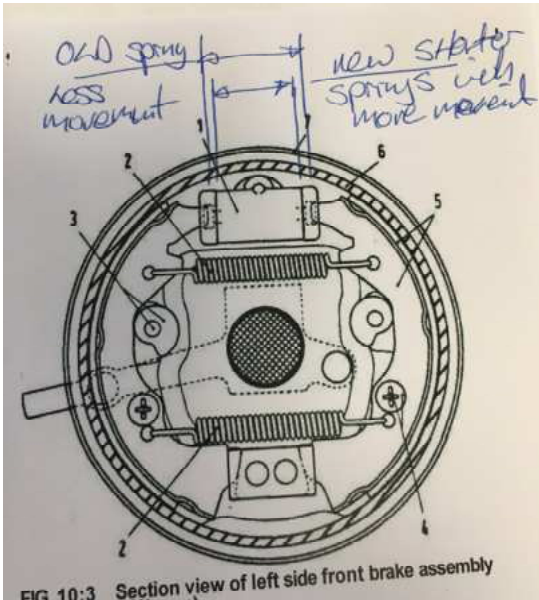 OLD spring
Loss
movement
new shorter
springs
more movement
1
7
2
6
3
5
2
4
FIG 10:3 Section view of left side front brake assembly